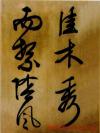 佳木秀
而繁陰風